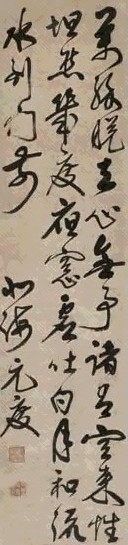 萬緣脫去心無事諸有空來性
坦然幾度夜窗虛吐白月和流
水到門前 北海元度